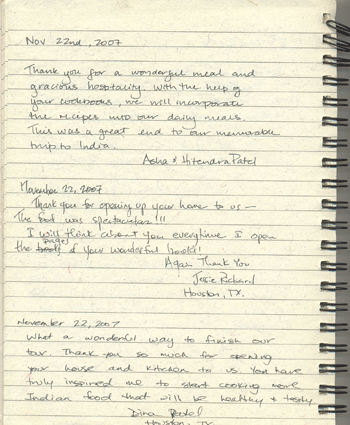 Nov 22nd, 2007
Thank you for a wonderful meal and
gracious hospitality. With the help of
your cookbooks, we will incorporate
the recipes into our daily meals.
This was a great end to our memorable
trip to India.
Asha & Hitendra Patel
November 22, 2007
Thank you for opening up your home to us —
The food was spectacular!!!
I will think about you everytime I open
the pages of your wonderful books!
Again Thank You
Josie Richard
Houston, TX.
November 22, 2007
What a wonderful way to finish our
tour. Thank you so much for opening
your house and kitchen to us. You have
truly inspired me to start cooking more
Indian food that will be healthy & tasty
Dina Patel
Houston, TX